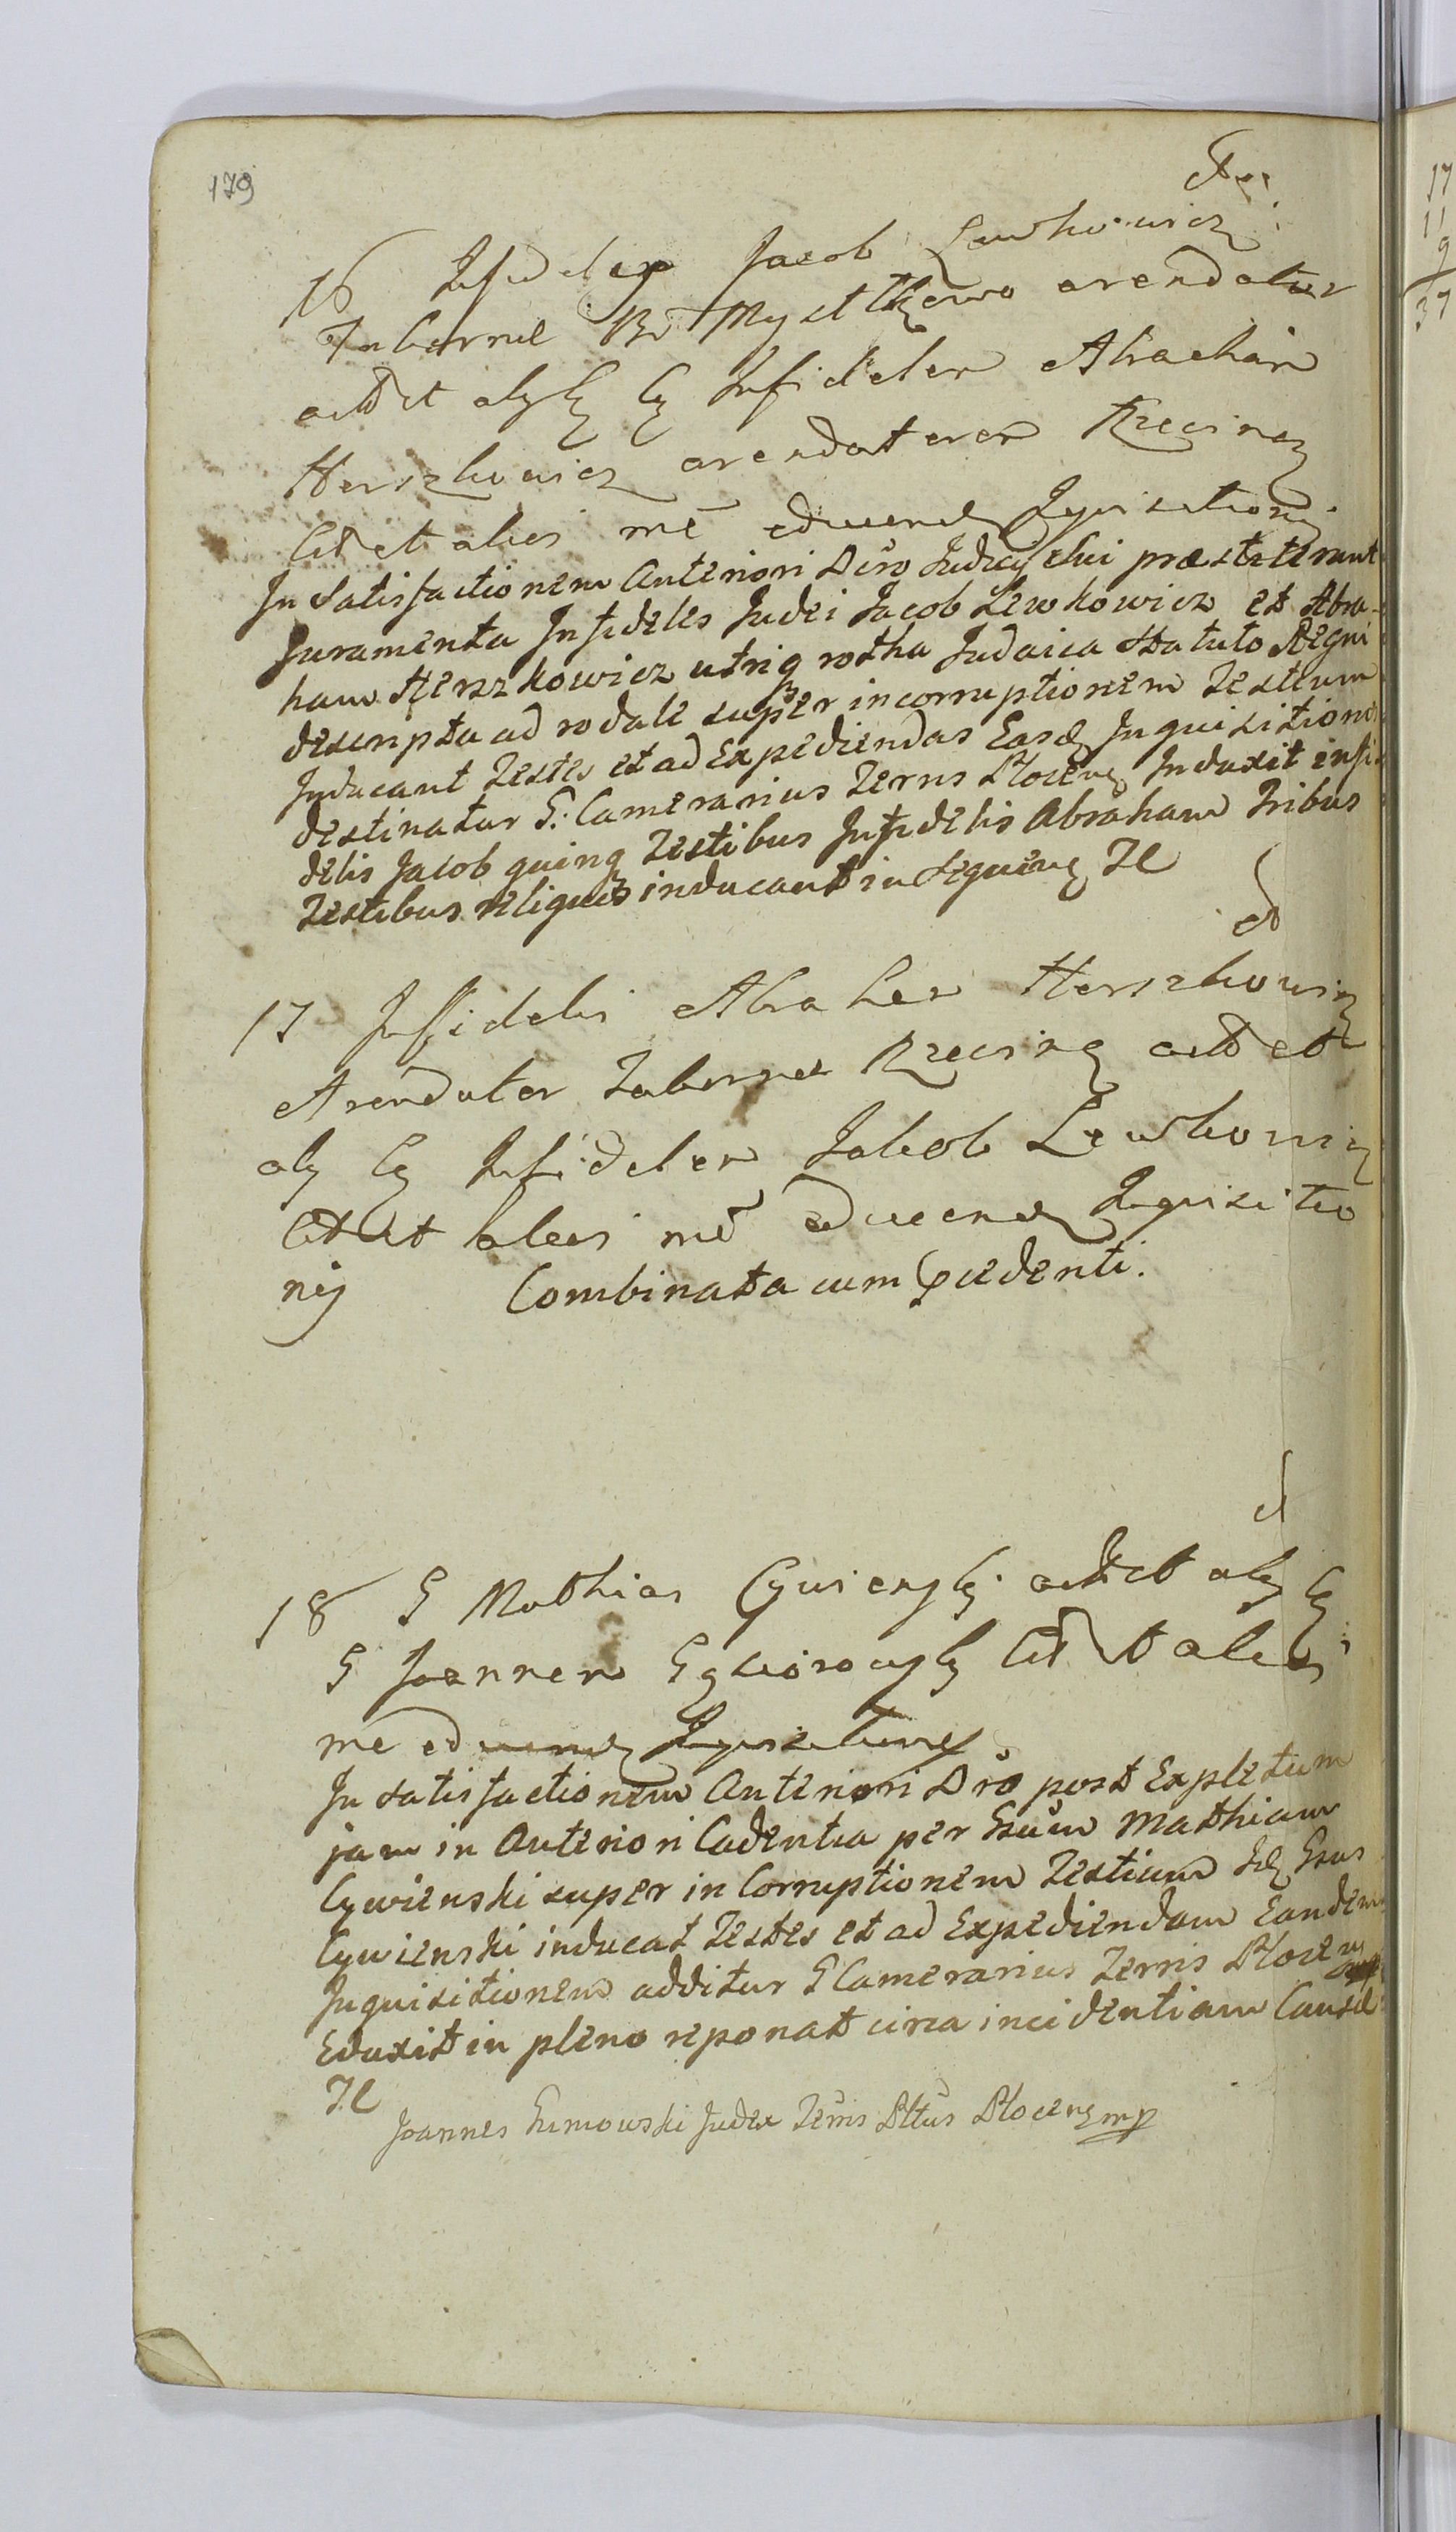 179
16 Infidelis Jacob Lewkowicz
Tabernae Br Mysltkowo arendator
act et Infidelem Abraham
Herszkowicz arendatorem
Cit et alios me educend Inquisitionis
In satisfactionem Anteriori Dčro Judicij sui præstiterunt
Juramenta Infideles Judei Jacob Lewkowicz et Abra-
ham Herszkowicz utriq rotha Judaica Statuto Regni
descripta ad rodale super incorruptionem Testium
Inducant Testes et ad Expediendas Easd Inquisitiones
destinatur G: Camerarius Terrns Plocens Induxit infi-
delis Jacob quinq Testibus Infidelis Abraham Tribus
Testibus reliquos inducant in sequens
et
17 Infidelis Abraham Herszkowicz
Arendator Tabernae act et
Infidelem Jakob Lewkowicz
Cit et alios me educend Inquisitio
nis Combinata cum pcedenti.
et
18 G Mathias Cywienski act et
G Joannem Cit et alios
me educend Inquisitionis
In satisfactionem Anteriori Dčro post Expletum
jam in Anteriori Cadentia per Gsum Mathiam
Cywienski super in Corruptionem Testium Gsus
Cywienski inducat Testes et ad Expediendam Eandem
Inquisitionem additur G Camerarius Terris Plocens
Eduxit in pleno reponat circa incidentiam Causae
Joannes Judex Terris Pltus Plocens mp
17
11
9
37